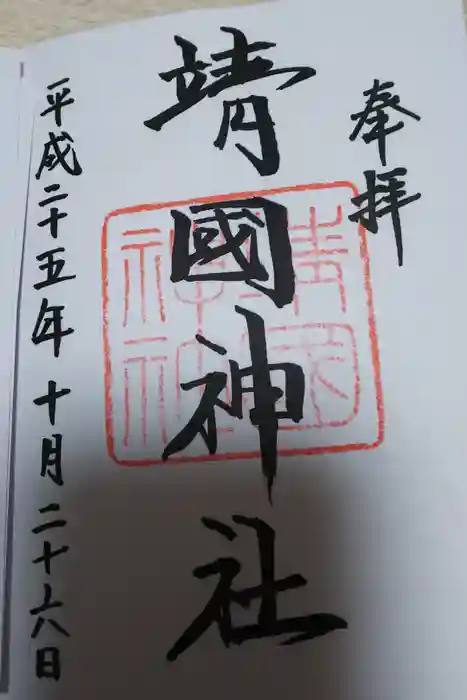 奉拝
靖國神社
平成二十五年十月二十六日